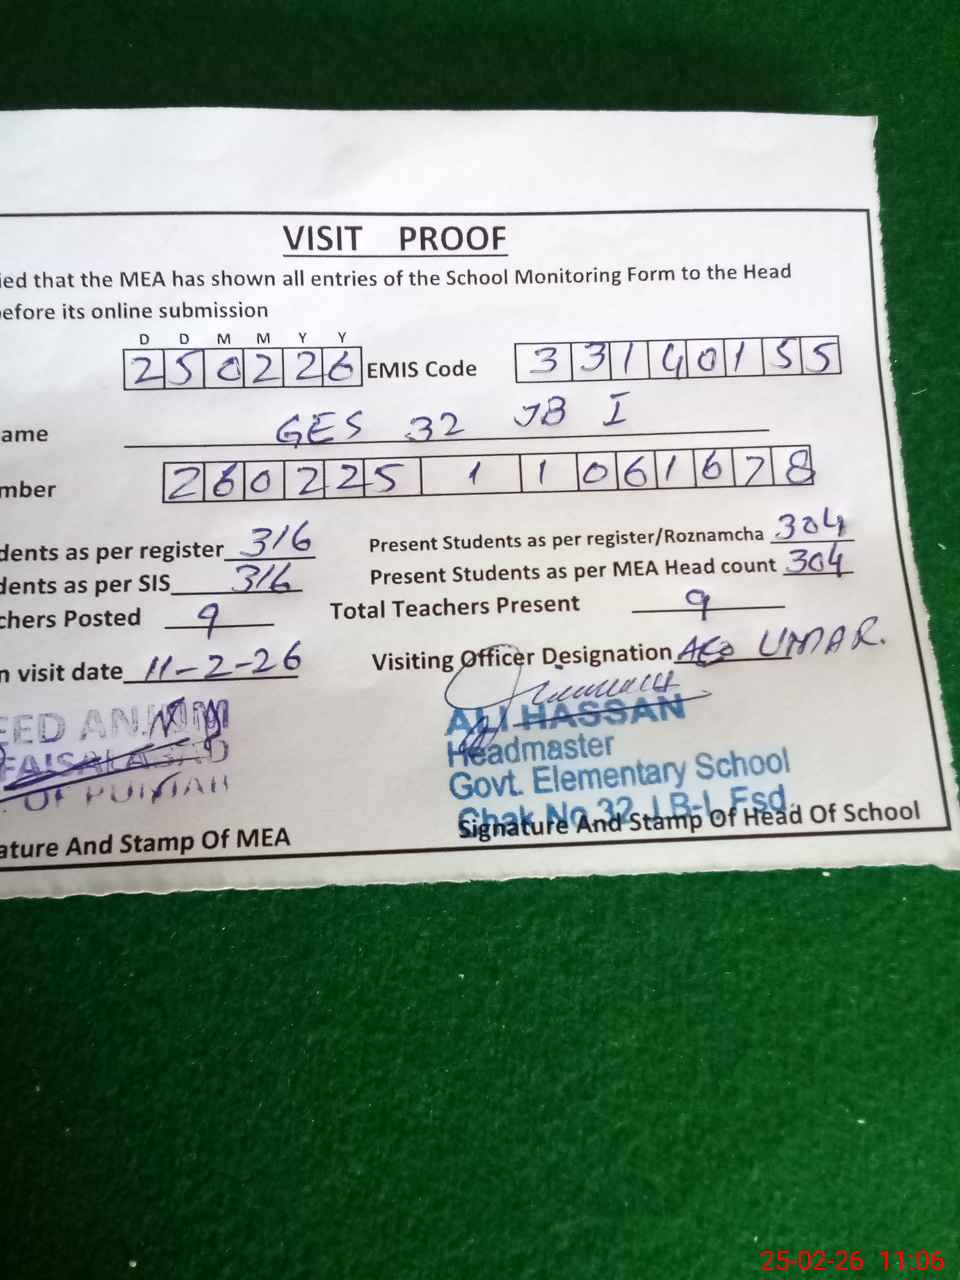 VISIT PROOF
ied that the MEA has shown all entries of the School Monitoring Form to the Head
efore its online submission
D D M M Y Y
250226 EMIS Code 33140155
ame GES 32 JB I
mber 260225 1 1 061678
dents as per register 316 Present Students as per register/Roznamcha 304
dents as per SIS 316 Present Students as per MEA Head count 304
chers Posted 9 Total Teachers Present 9
n visit date 11-2-26 Visiting Officer Designation AEO UMAR.
EED ANJUM
FAISALABAD
OF PUNJAB
ALI HASSAN
Headmaster
Govt. Elementary School
Chak No.32 J.B-I, Fsd.
ature And Stamp Of MEA Signature And Stamp Of Head Of School
25-02-26 11:06